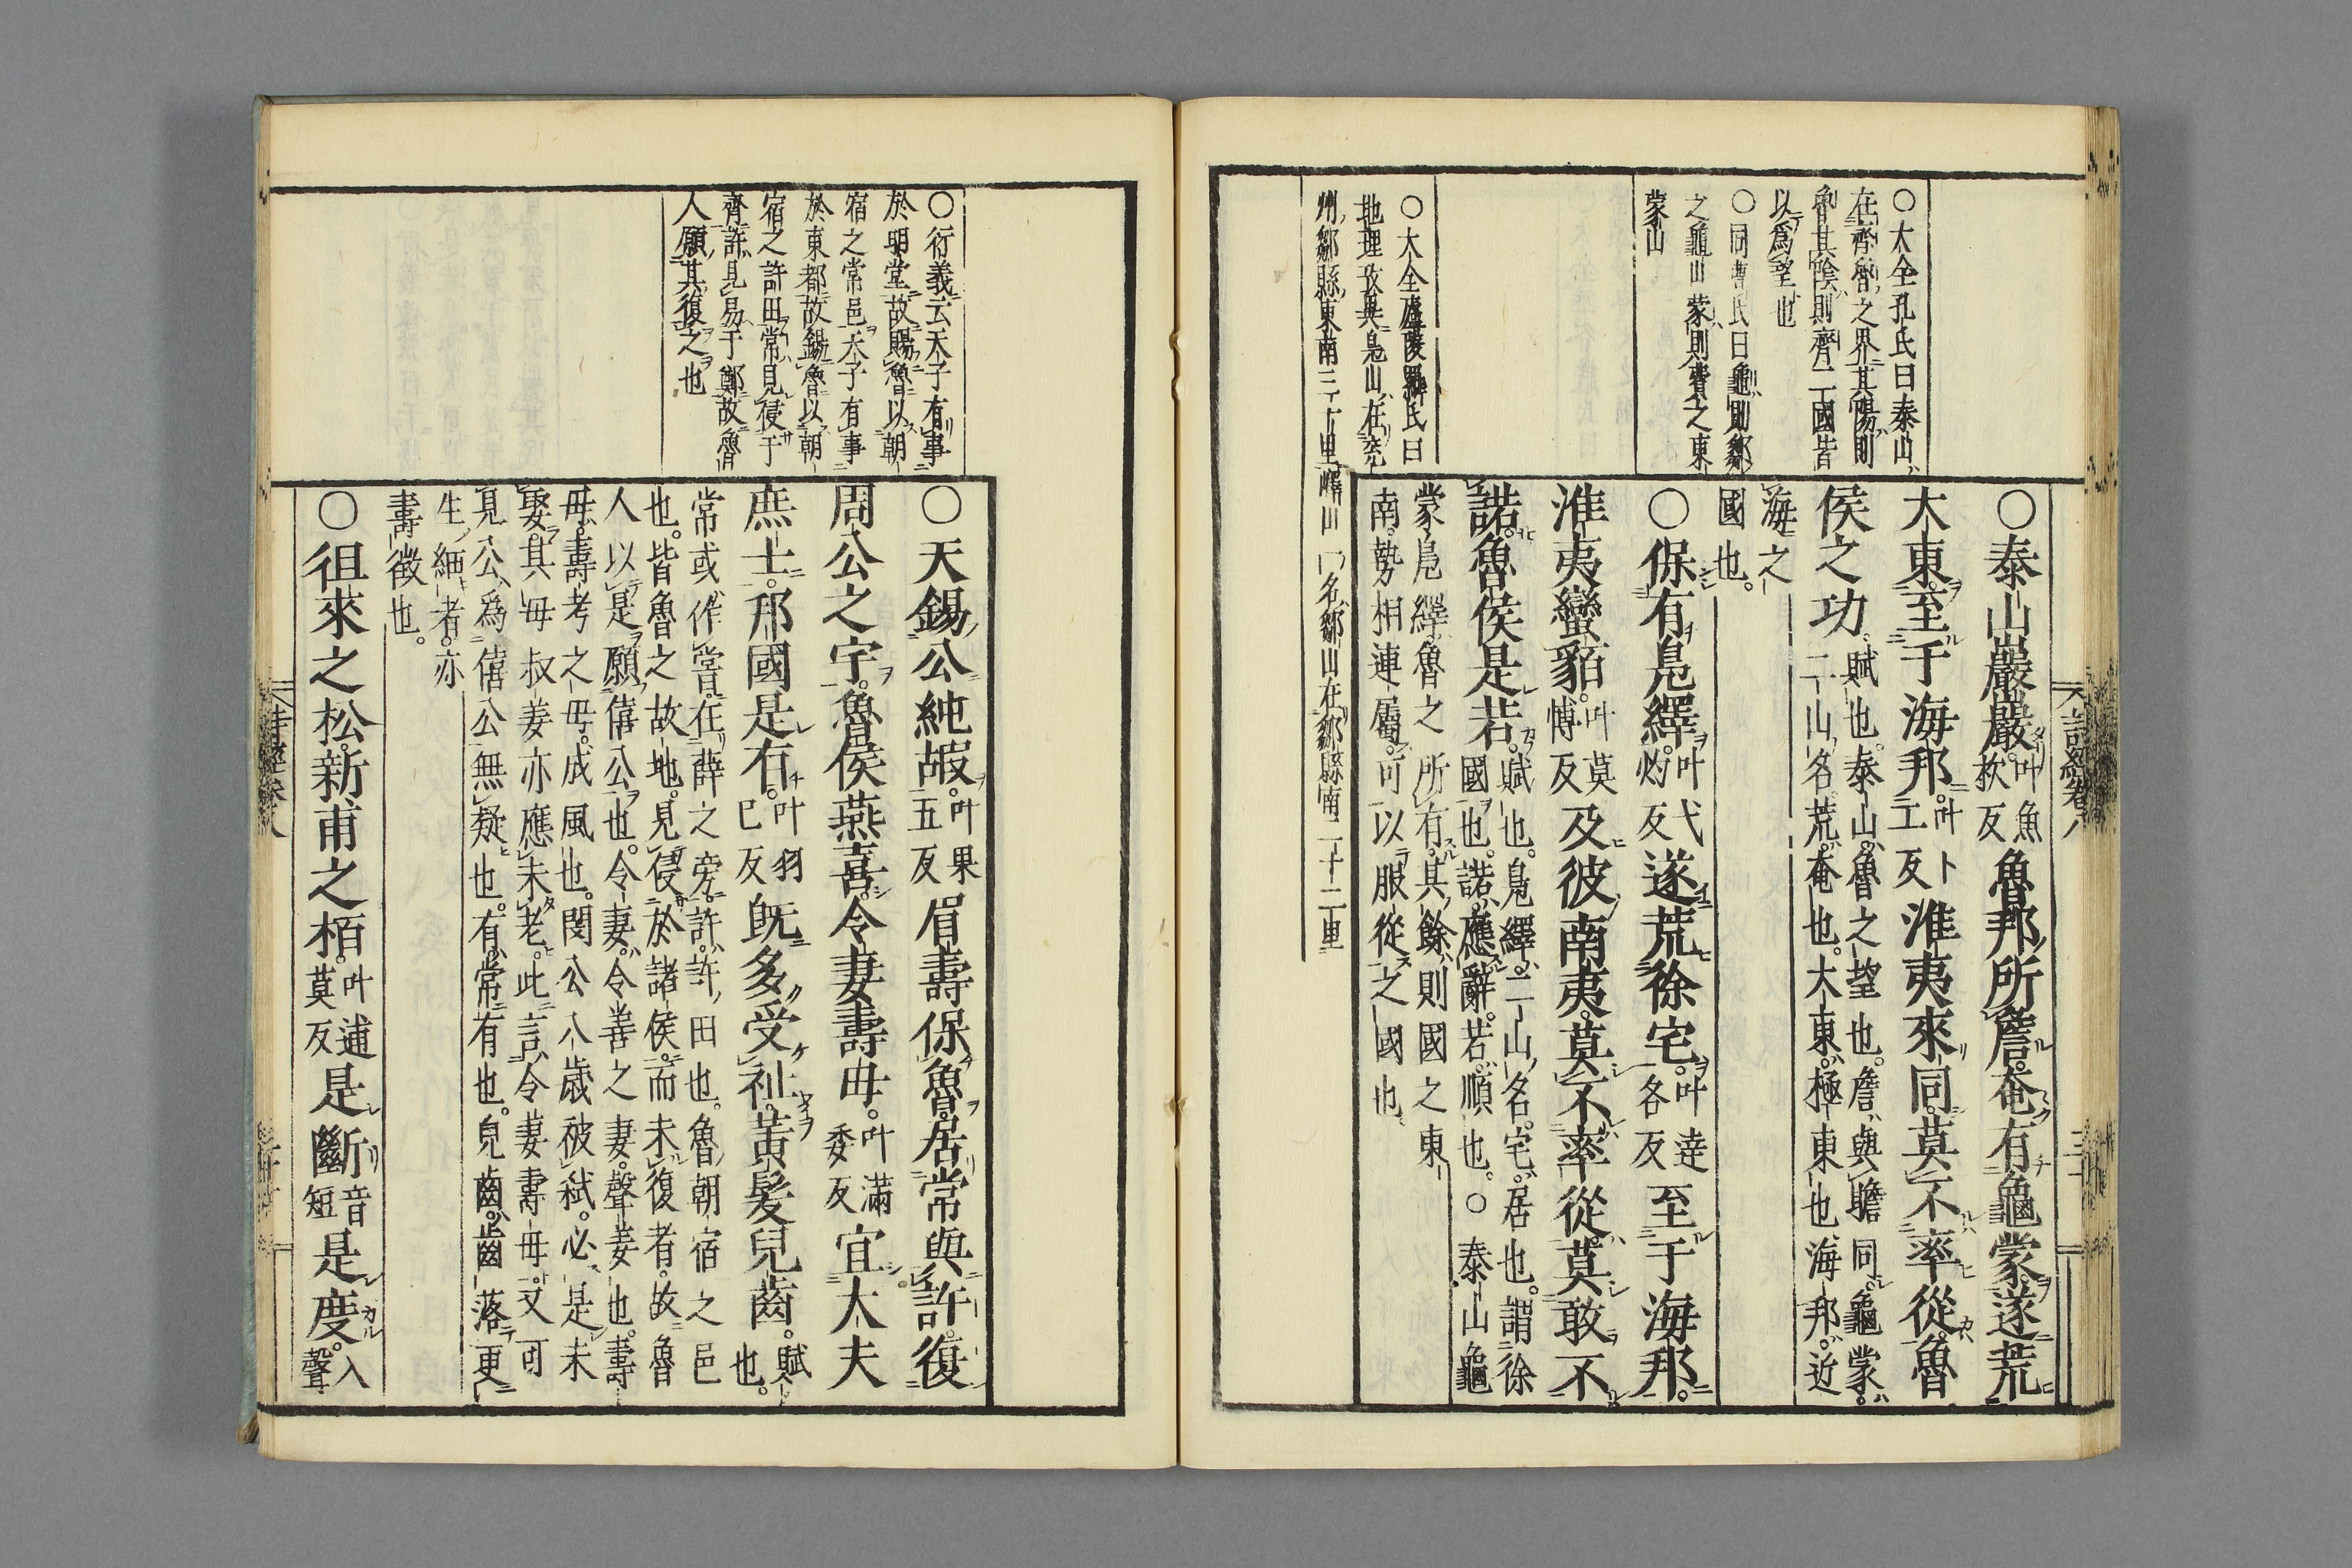 ○大全孔氏曰泰山
在齊魯之界其陽則
魯其陰則齊二國皆
以爲望也
○同曹氏曰龜則鄒
之龜山蒙則費之東
蒙山
○大全廬陵羅氏曰
地理攷異鳬山在兖
州鄒縣東南三十里嶧山一名鄒山在鄒縣南二十二里
詩經卷八
○泰山巖巖叶魚
杴反魯邦所詹奄有龜蒙遂荒
大東至于海邦叶卜
工反淮夷來同莫不率從魯
侯之功賦也泰山魯之望也詹與瞻同龜蒙
二山名荒奄也大東極東也海邦近
海之
國也
○保有鳬繹叶弋
灼反遂荒徐宅叶達
各反至于海邦
淮夷蠻貊叶莫
博反及彼南夷莫不率從莫敢不
諾魯侯是若賦也鳬繹二山名宅居也謂徐
國也諾應辭若順也○泰山龜
蒙鳬繹魯之所有其餘則國之東
南勢相連屬可以服從之國也
○衍義云天子有事
於明堂故賜魯以朝
宿之常邑天子有事
於東都故錫魯以朝
宿之許田常見侵于
齊許見易于鄭故魯
人願其復之也
○天錫公純嘏叶果
五反眉壽保魯居常與許復
周公之宇魯侯燕喜令妻壽母叶滿
委反宜大夫
庶士邦國是有叶羽
已反旣多受祉黃髮兒齒賦
也
常或作嘗在薛之旁許許田也魯朝宿之邑
也皆魯之故地見侵於諸侯而未復者故魯
人以是願僖公也令妻令善之妻聲姜也壽
母壽考之母成風也閔公八歲被弑必是未
娶其母叔姜亦應未老此言令妻壽母又可
見公爲僖公無疑也有常有也兒齒齒落更
生細者亦
壽徵也
○徂來之松新甫之栢叶逋
莫反是斷音
短是度入
聲
詩經卷八